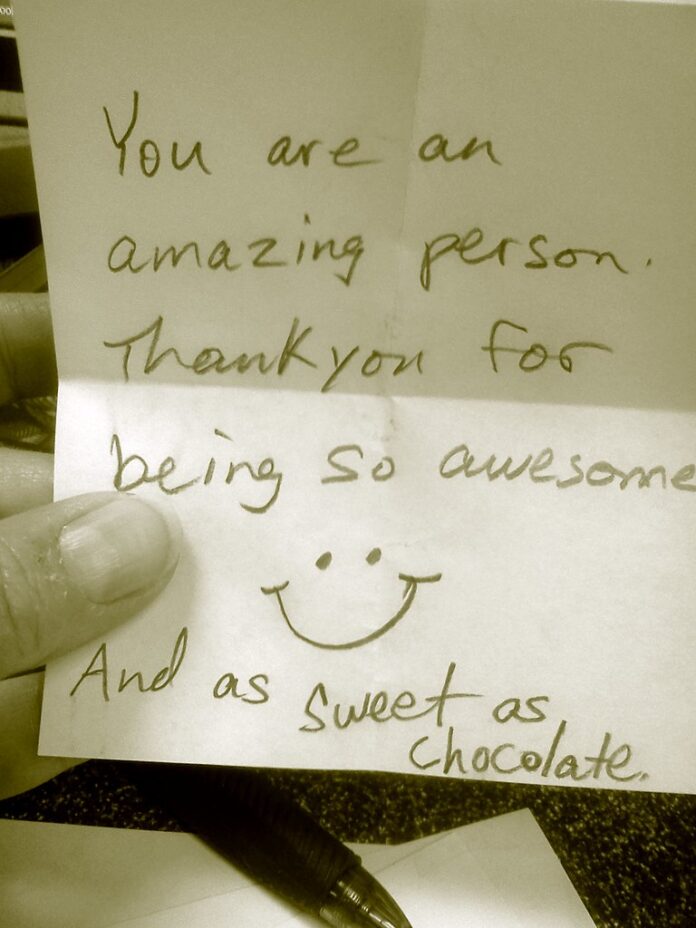 You are an
amazing person.
Thankyou for
being so awesome
And as sweet as
chocolate.